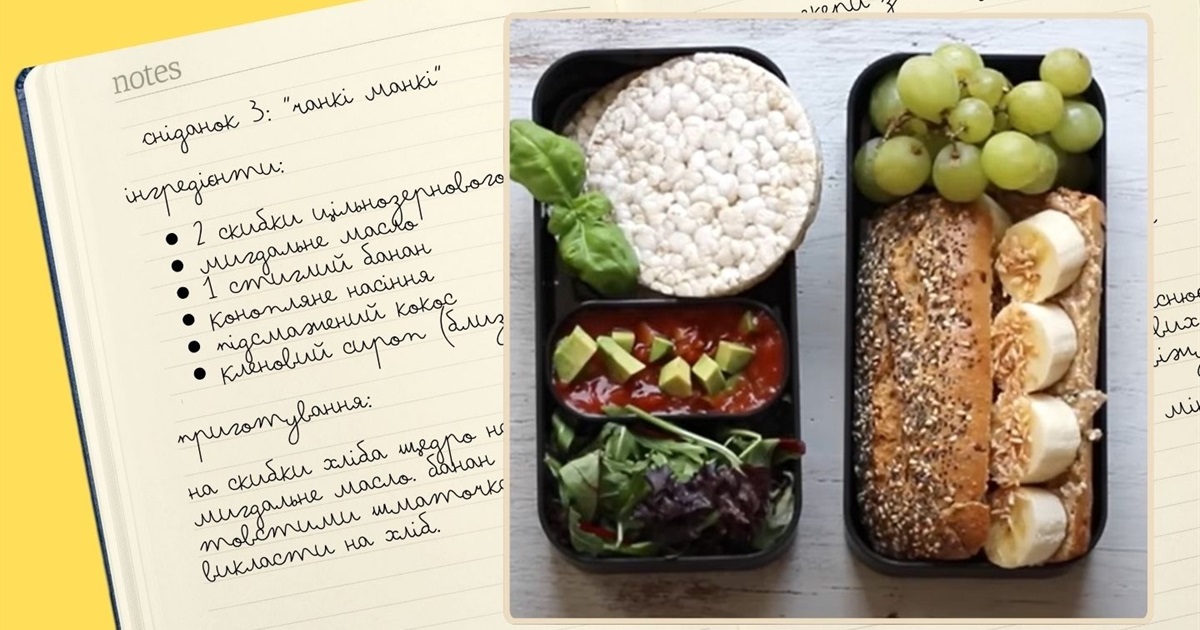 notes
сніданок 3: "чанкі манкі"
інгредієнти:
● 2 скибки цільнозернового
● мигдальне масло
● 1 стиглий банан
● конопляне насіння
● підсмажений кокос
● кленовий сироп
приготування:
на скибки хліба щедро
мигдальне масло. банан
товстими шматочка
викласти на хліб.